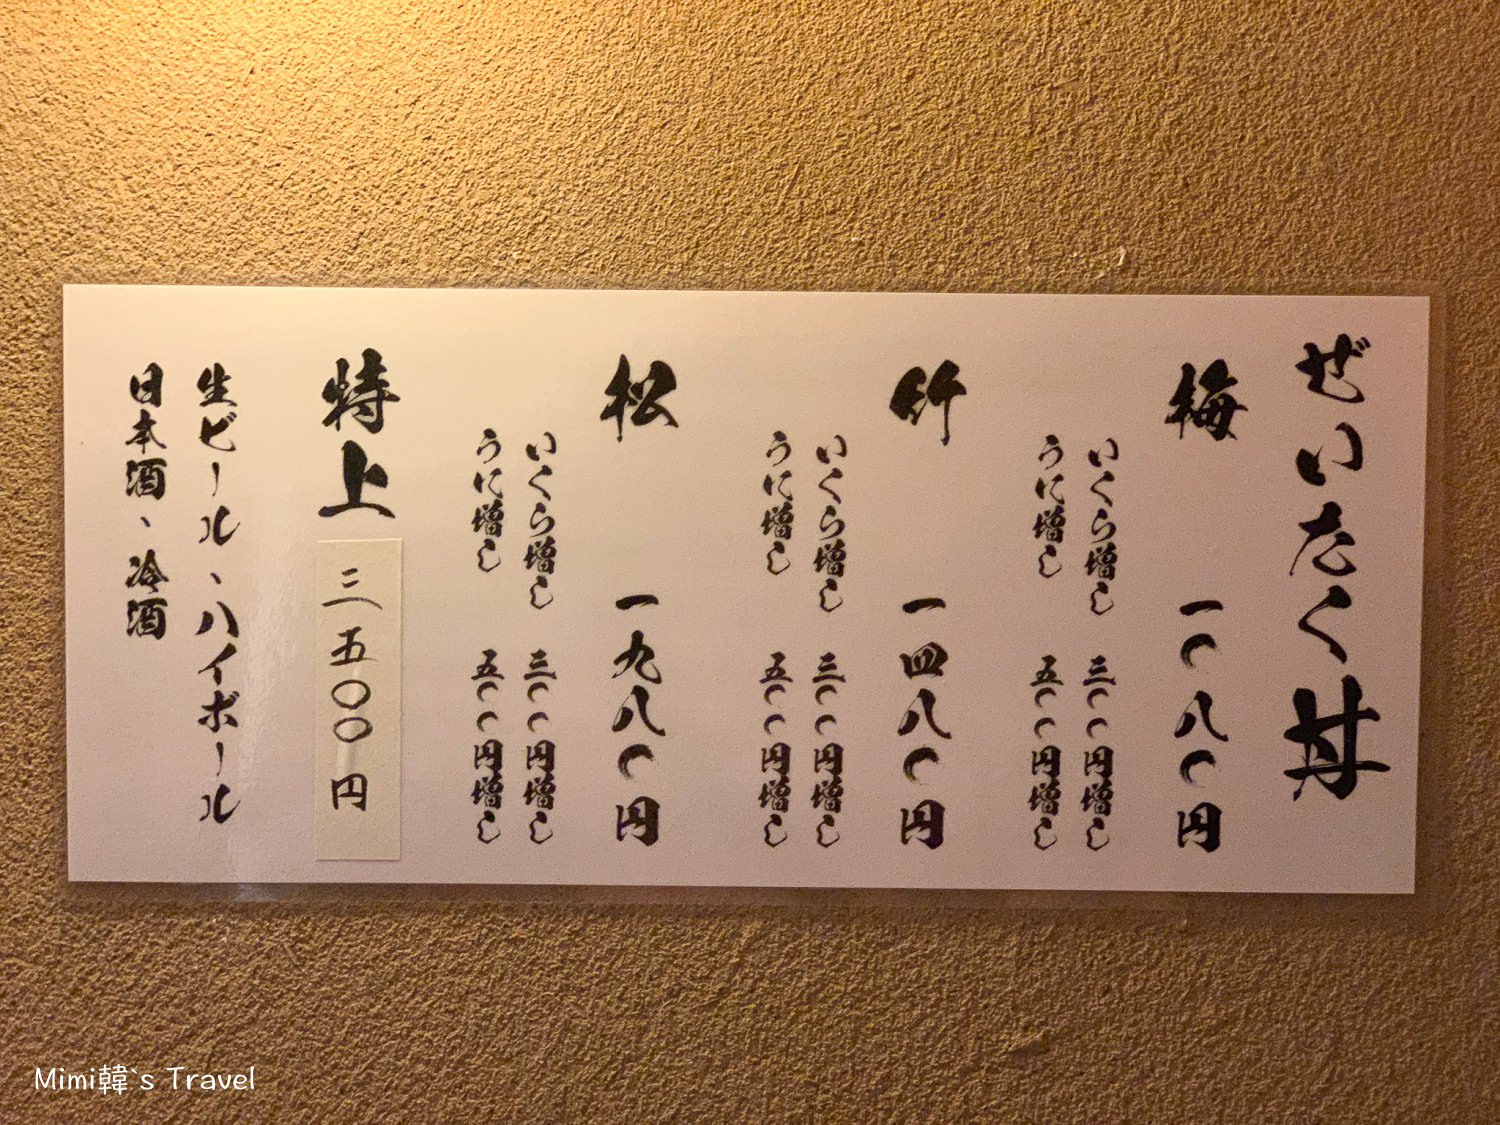 ぜいたく丼
梅 一〇八〇円
いくら増し 三〇〇円増し
うに増し 五〇〇円増し
竹 一四八〇円
いくら増し 三〇〇円増し
うに増し 五〇〇円増し
松 一九八〇円
いくら増し 三〇〇円増し
うに増し 五〇〇円増し
特上 三五〇〇円
生ビール、ハイボール
日本酒、冷酒
Mimi韓`s Travel